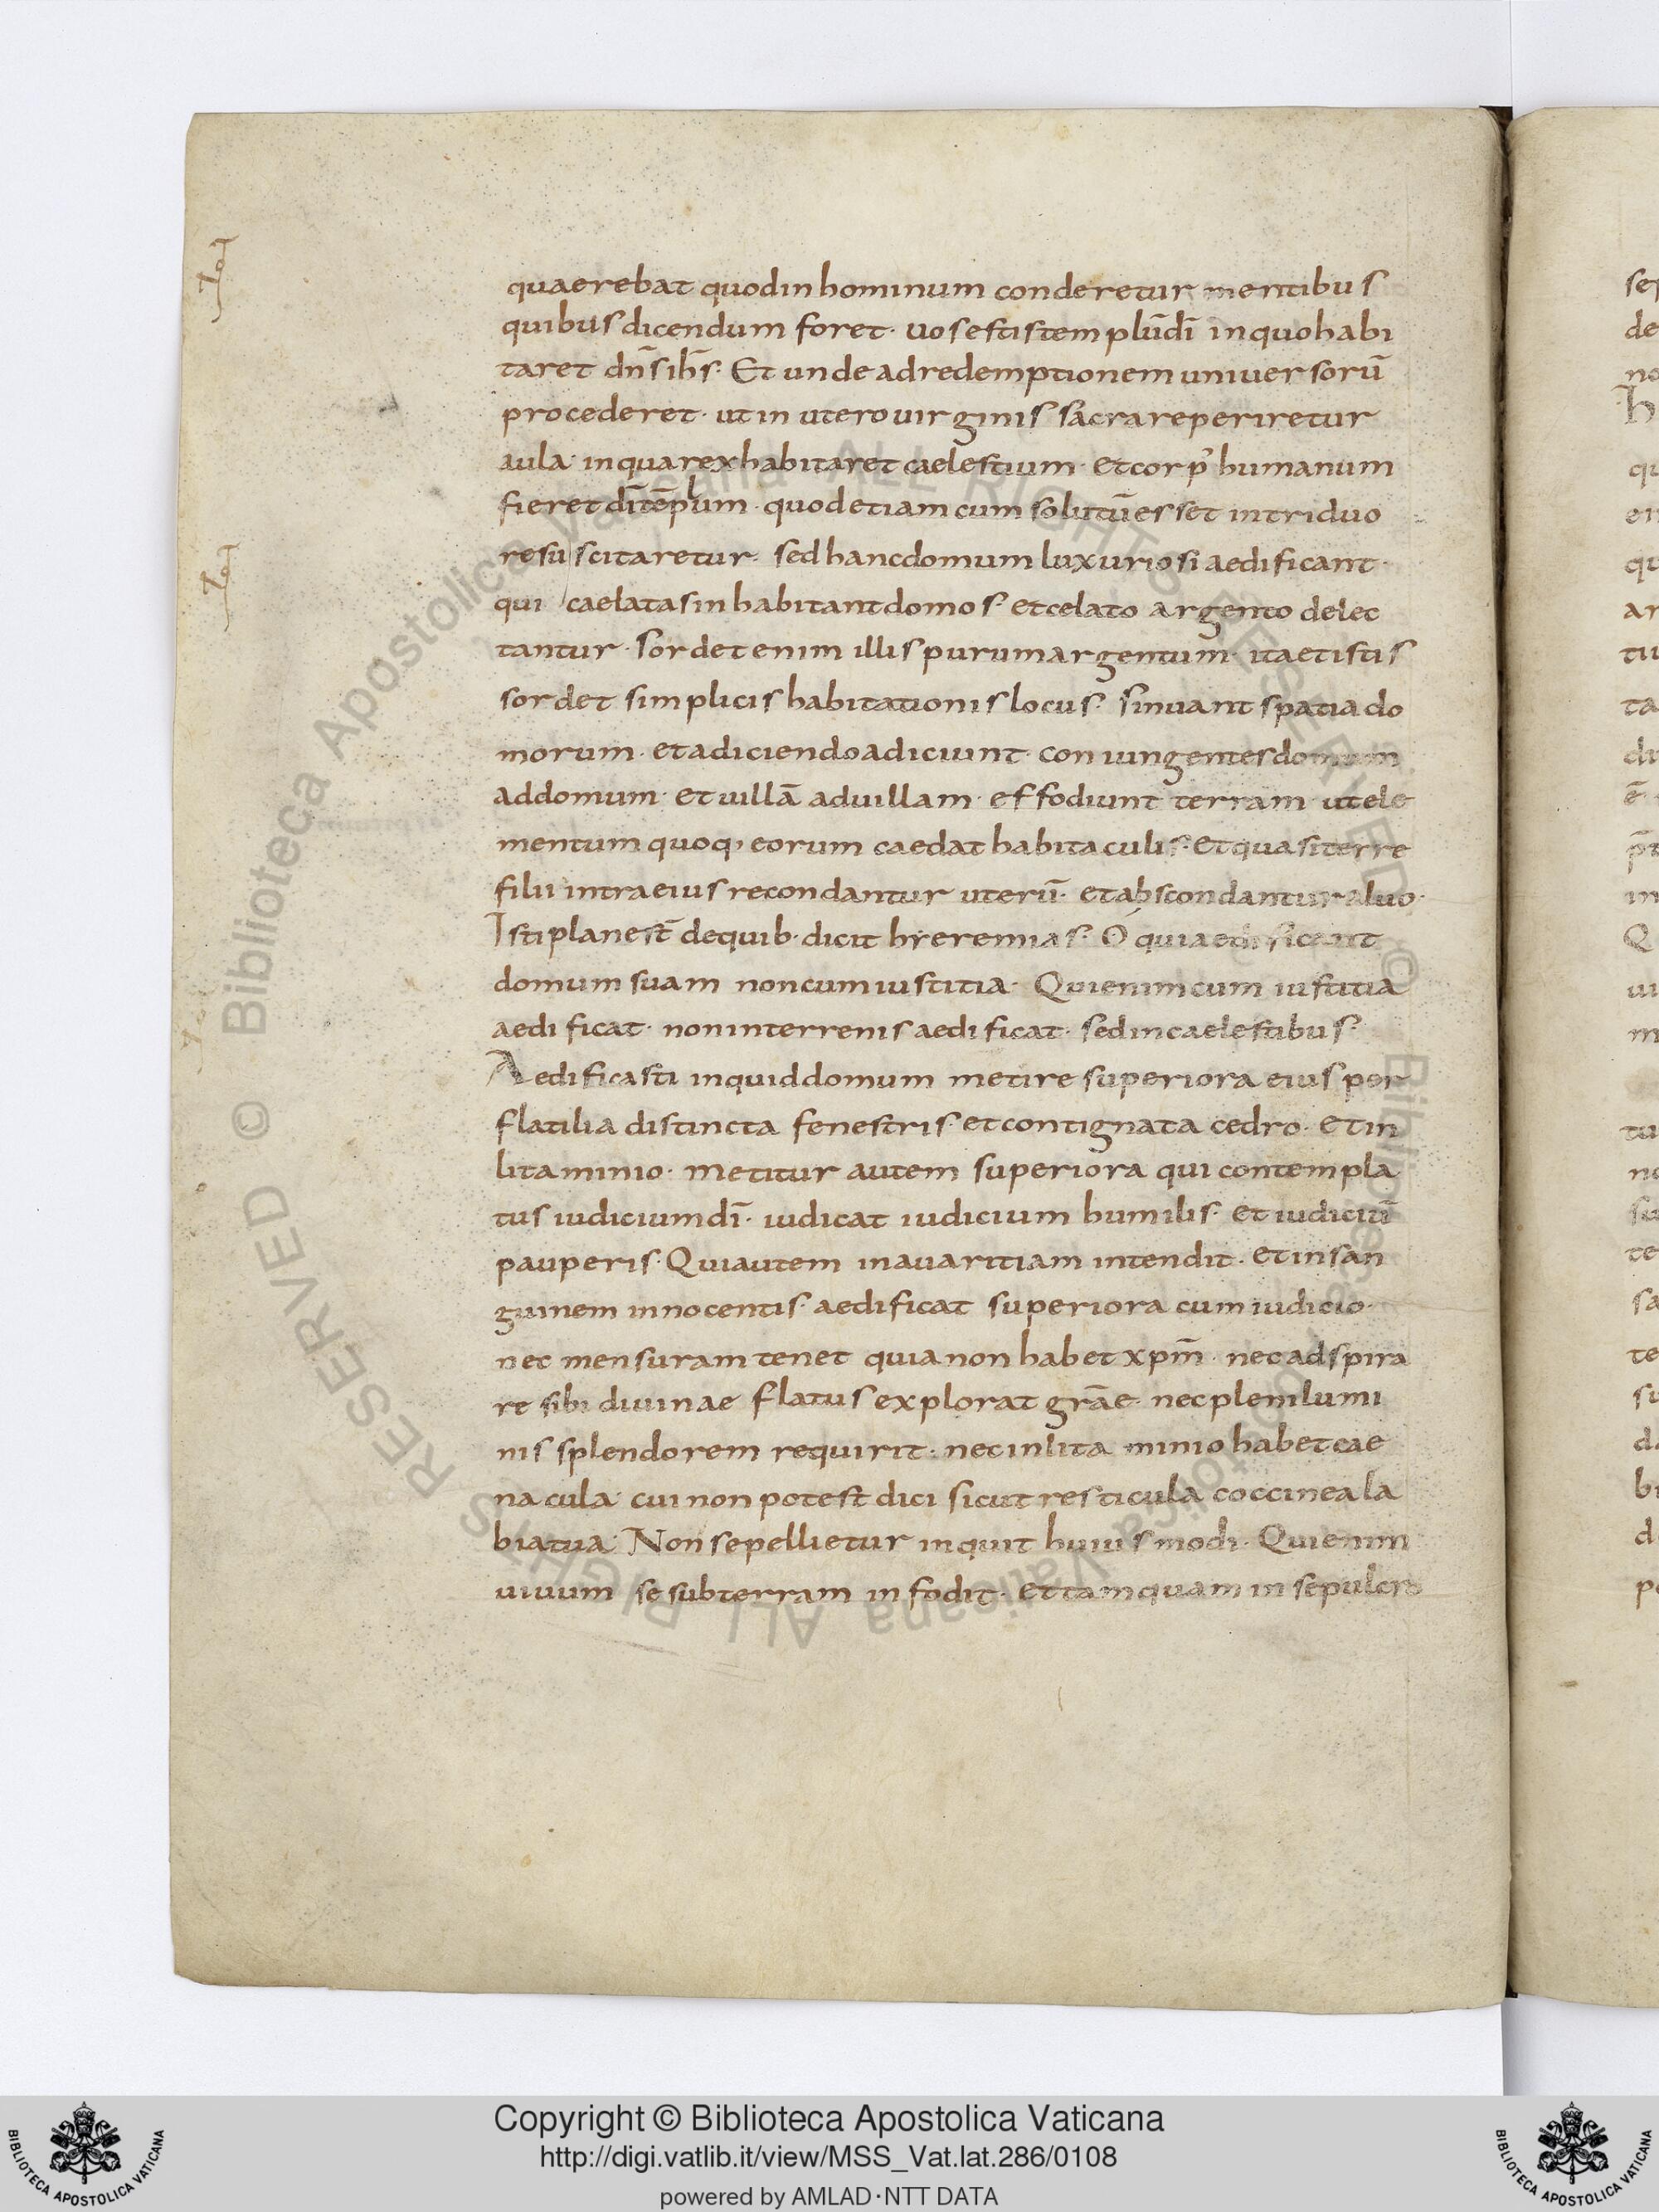 quaerebat quodinhominum conderetur mentibus
quibus dicendum foret · uosestistemplūdī inquohabi
taret dn̄s ih̄s · Et unde adredemptionem uniuersorū
procederet · ut in utero uirginis sacrareperiretur
aula · inquarexhabitaret caelestium · etcorp᾿ humanum
fieret dītēplum · quodetiam cum solutūesset intriduo
resu scitaretur · sed hancdomum luxuriosi aedificant ·
qui caelatasinhabitantdomos · etcelato argento delec
tantur · sordetenim illis purumargentum · itaetistis
sordet simplicis habitationis locus · sinuant spatia do
morum · etadiciendoadiciunt · coniungentesdomum
addomum · et uillā aduillam · effodiunt terram utele
mentum quoq, eorum caedat habitaculis · Etquasiterre
filii intraeius recondantur uterū · etabscondanturaluo ·
Istiplanest̄ dequib· dicit hieremias · O quiaedificant
domum suam noncumiustitia · Quienimcum iustitia
aedificat · noninterrenis aedificat · sedincaelestibus ·
Aedificasti inquiddomum metire superiora eius per
flatilia distincta fenestris · etcontignata cedro · etin
lita minio · metitur autem superiora qui contempla
tus iudiciumdī · iudicat iudicium humilis · et iudiciū
pauperis · Quiautem inauaritiam intendit · etinsan
guinem innocentis · aedificat superiora cum iudicio ·
nec mensuram tenet quianonhabet xpm̄ · nec adspira
re sibi diuinae flatus explorat grāe · necplenilumi
nis splendorem requirit · necinlita minio habetcae
nacula · cuinon potest dici sicut resticula coccineala
biatua · Nonsepellietur inquit huiusmodi · Quienim
uiuum se subterram infodit · et tamquam in sepulcro
sep
de
no
qu
en
qu
ar
tu
ta
di
ē
in
Q
ui
m
tu
no
su
te
sa
te
su
da
bi
d
po
Biblioteca Apostolica Vaticana ALL RIGHTS RESERVED ©
Biblioteca Apostolica Vaticana ALL RIGHTS RESERVED ©
Copyright © Biblioteca Apostolica Vaticana
http://digi.vatlib.it/view/MSS_Vat.lat.286/0108
powered by AMLAD·NTT DATA
BIBLIOTECA APOSTOLICA VATICANA
BIBLIOTECA APOSTOLICA VATICANA